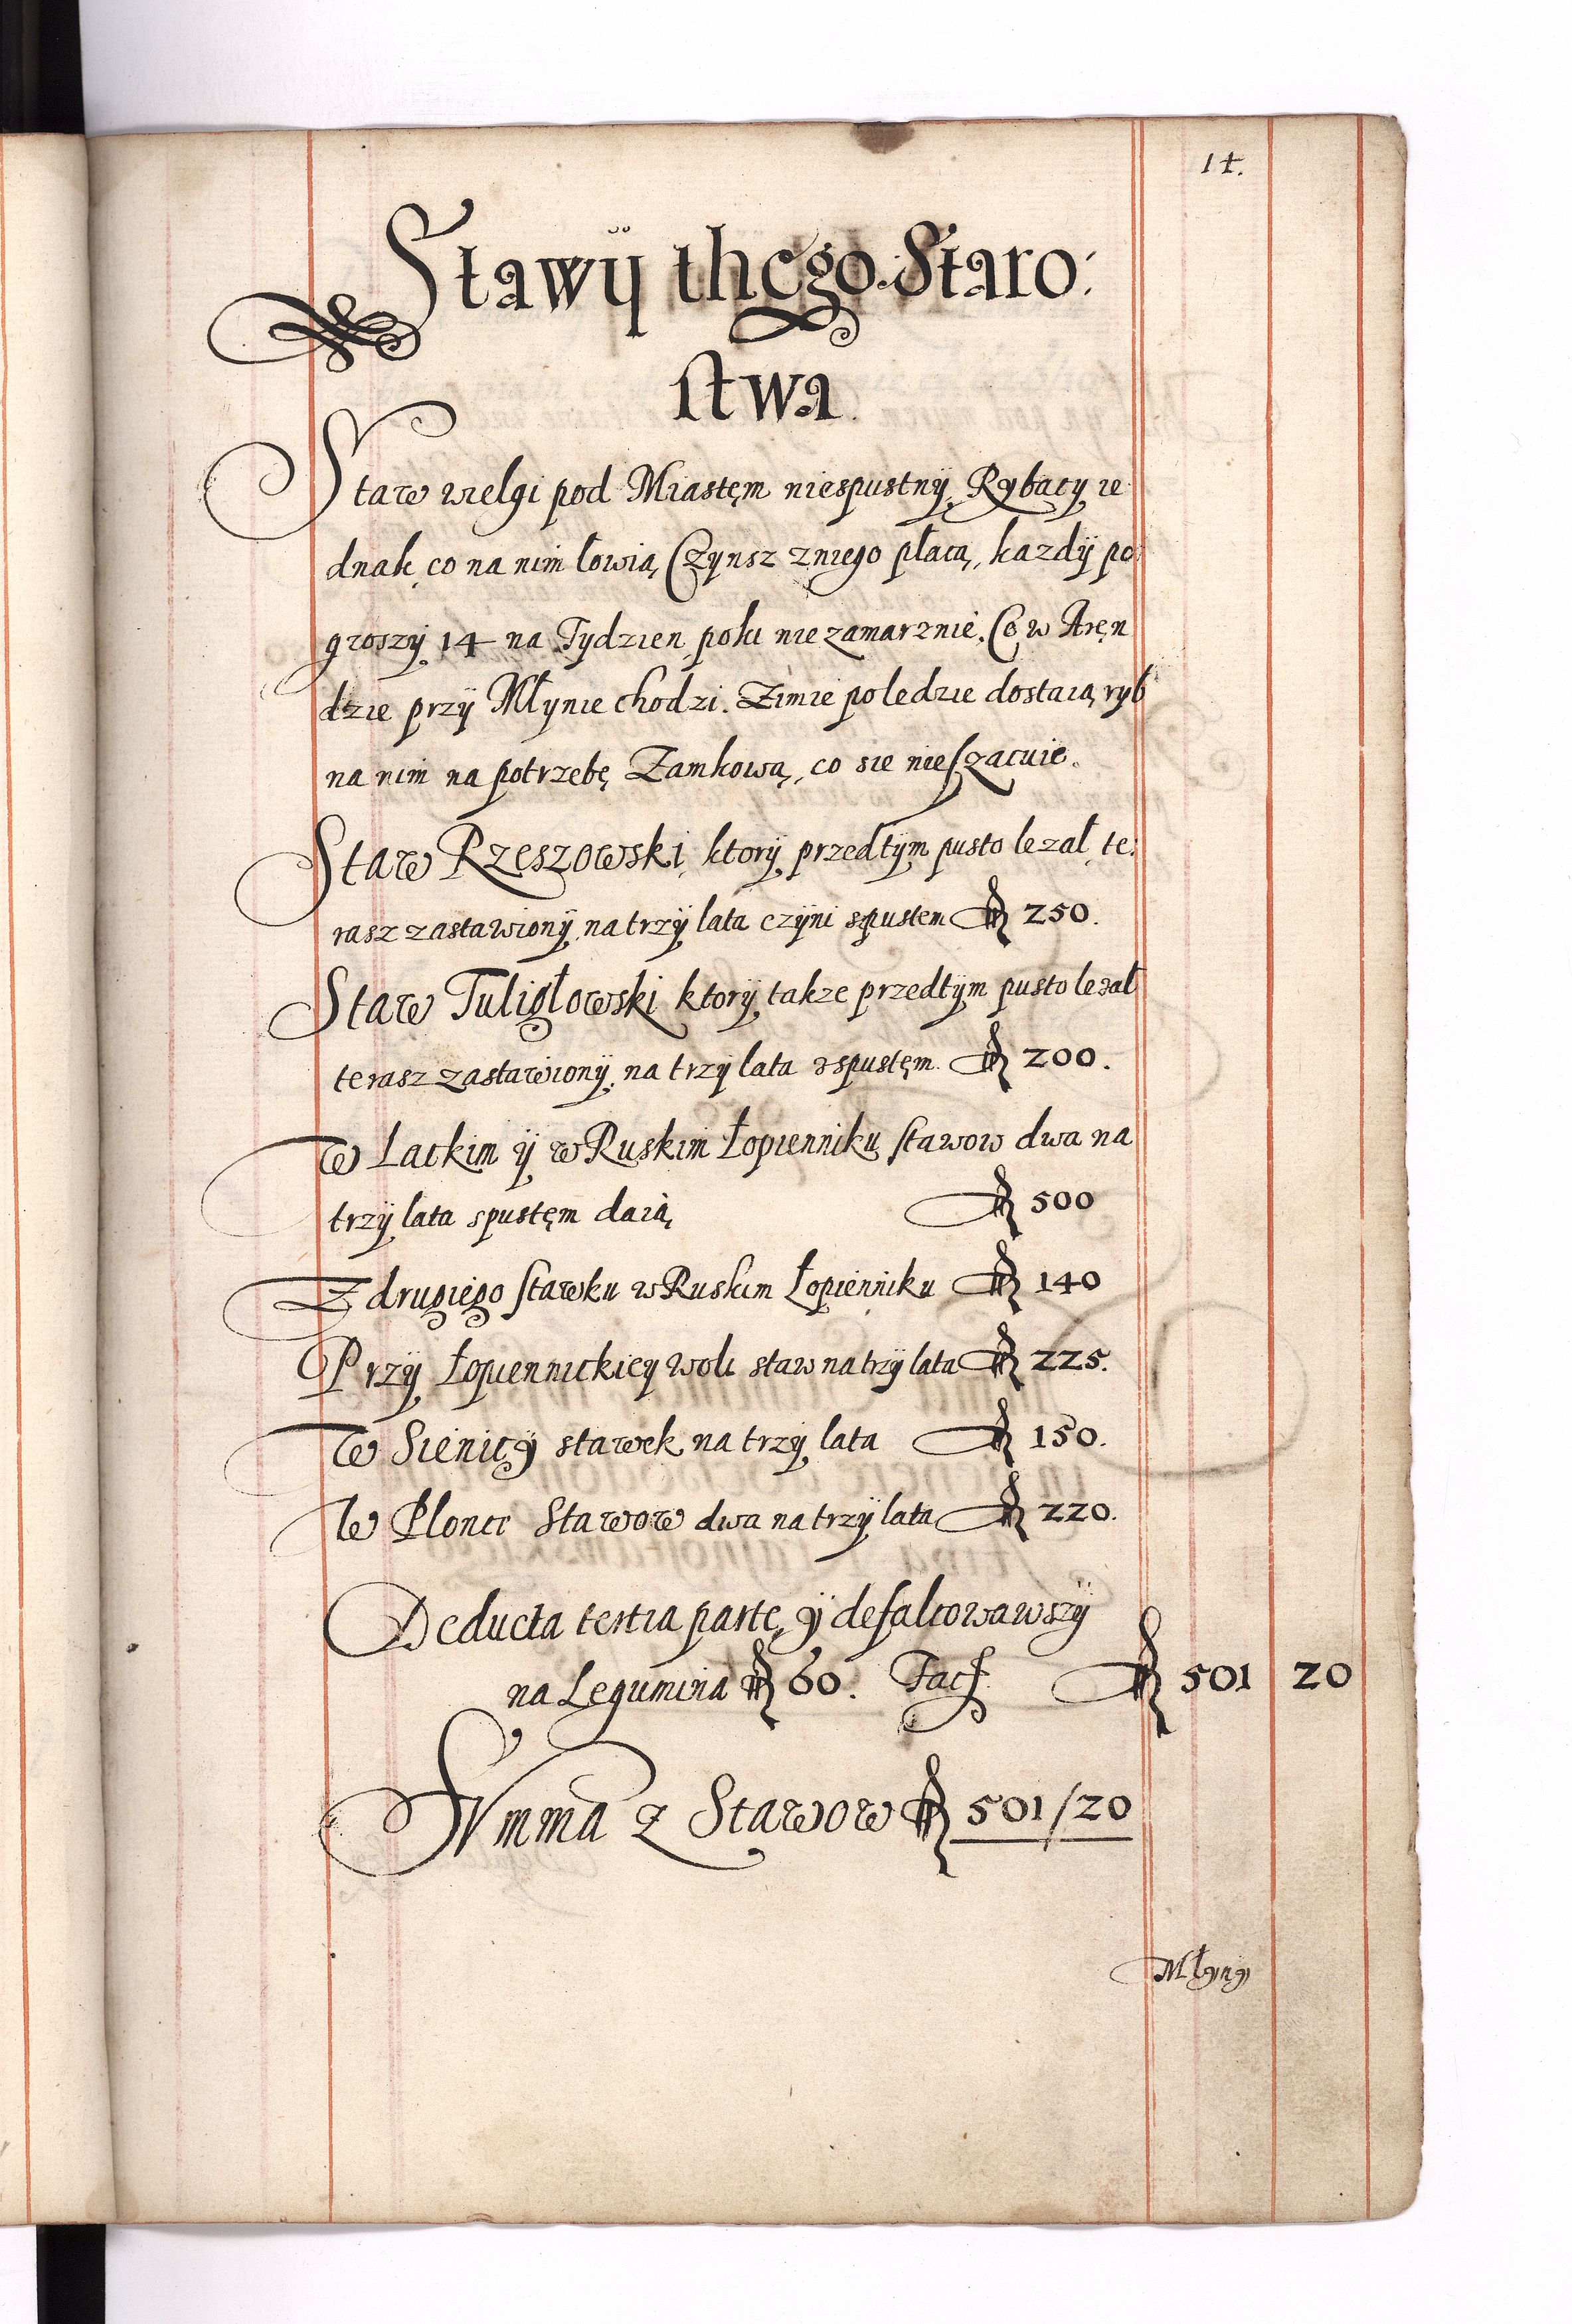 14.
Stawÿ thego Staro:
stwa.
Staw wielgi pod Miastęm niespustnÿ, Rybacy ie
dnak co na nim łowią Czynsz zniego płacą, kazdÿ po
groszÿ 14 na Tydzien poki nie zamarznie. Co w Aręn
dzie przÿ Młynie chodzi. Zimie poledzie dostaią ryb
na nim na potrzebę Zamkową, co sie nieszacuie.
Staw Rzeszowski, ktorÿ przedtÿm pusto lezał te:
rasz zastawionÿ na trzÿ lata czÿni spustem 250.
Staw Tuligłowski ktorÿ takze przedtÿm pusto lezał
terasz zastawionÿ na trzÿ lata zspustęm. 200.
W Lackim ÿ w Ruskim Łopienniku stawow dwa na
trzÿ lata spustęm daią 500
Z drugiego stawku w Ruskim Łopienniku 140
Przÿ Łopiennickiey woli staw na trzÿ lata 225.
W Sienicy stawek na trzÿ lata 150.
W Płonce Stawow dwa na trzÿ lata 220.
Deducta tertia parte, y defalcowawszÿ
na Legumina 60. Facit 501 20
Summa z Stawow 501/20
Młyny